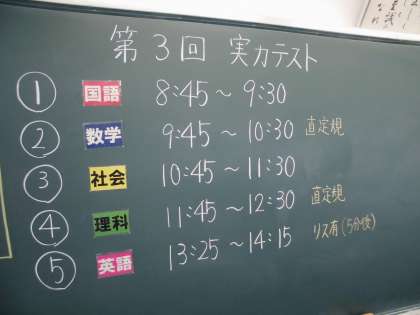 第3回 実力テスト
① 国語 8:45～9:30
② 数学 9:45～10:30 直定規
③ 社会 10:45～11:30
④ 理科 11:45～12:30 直定規
⑤ 英語 13:25～14:15 リス有(5分後)